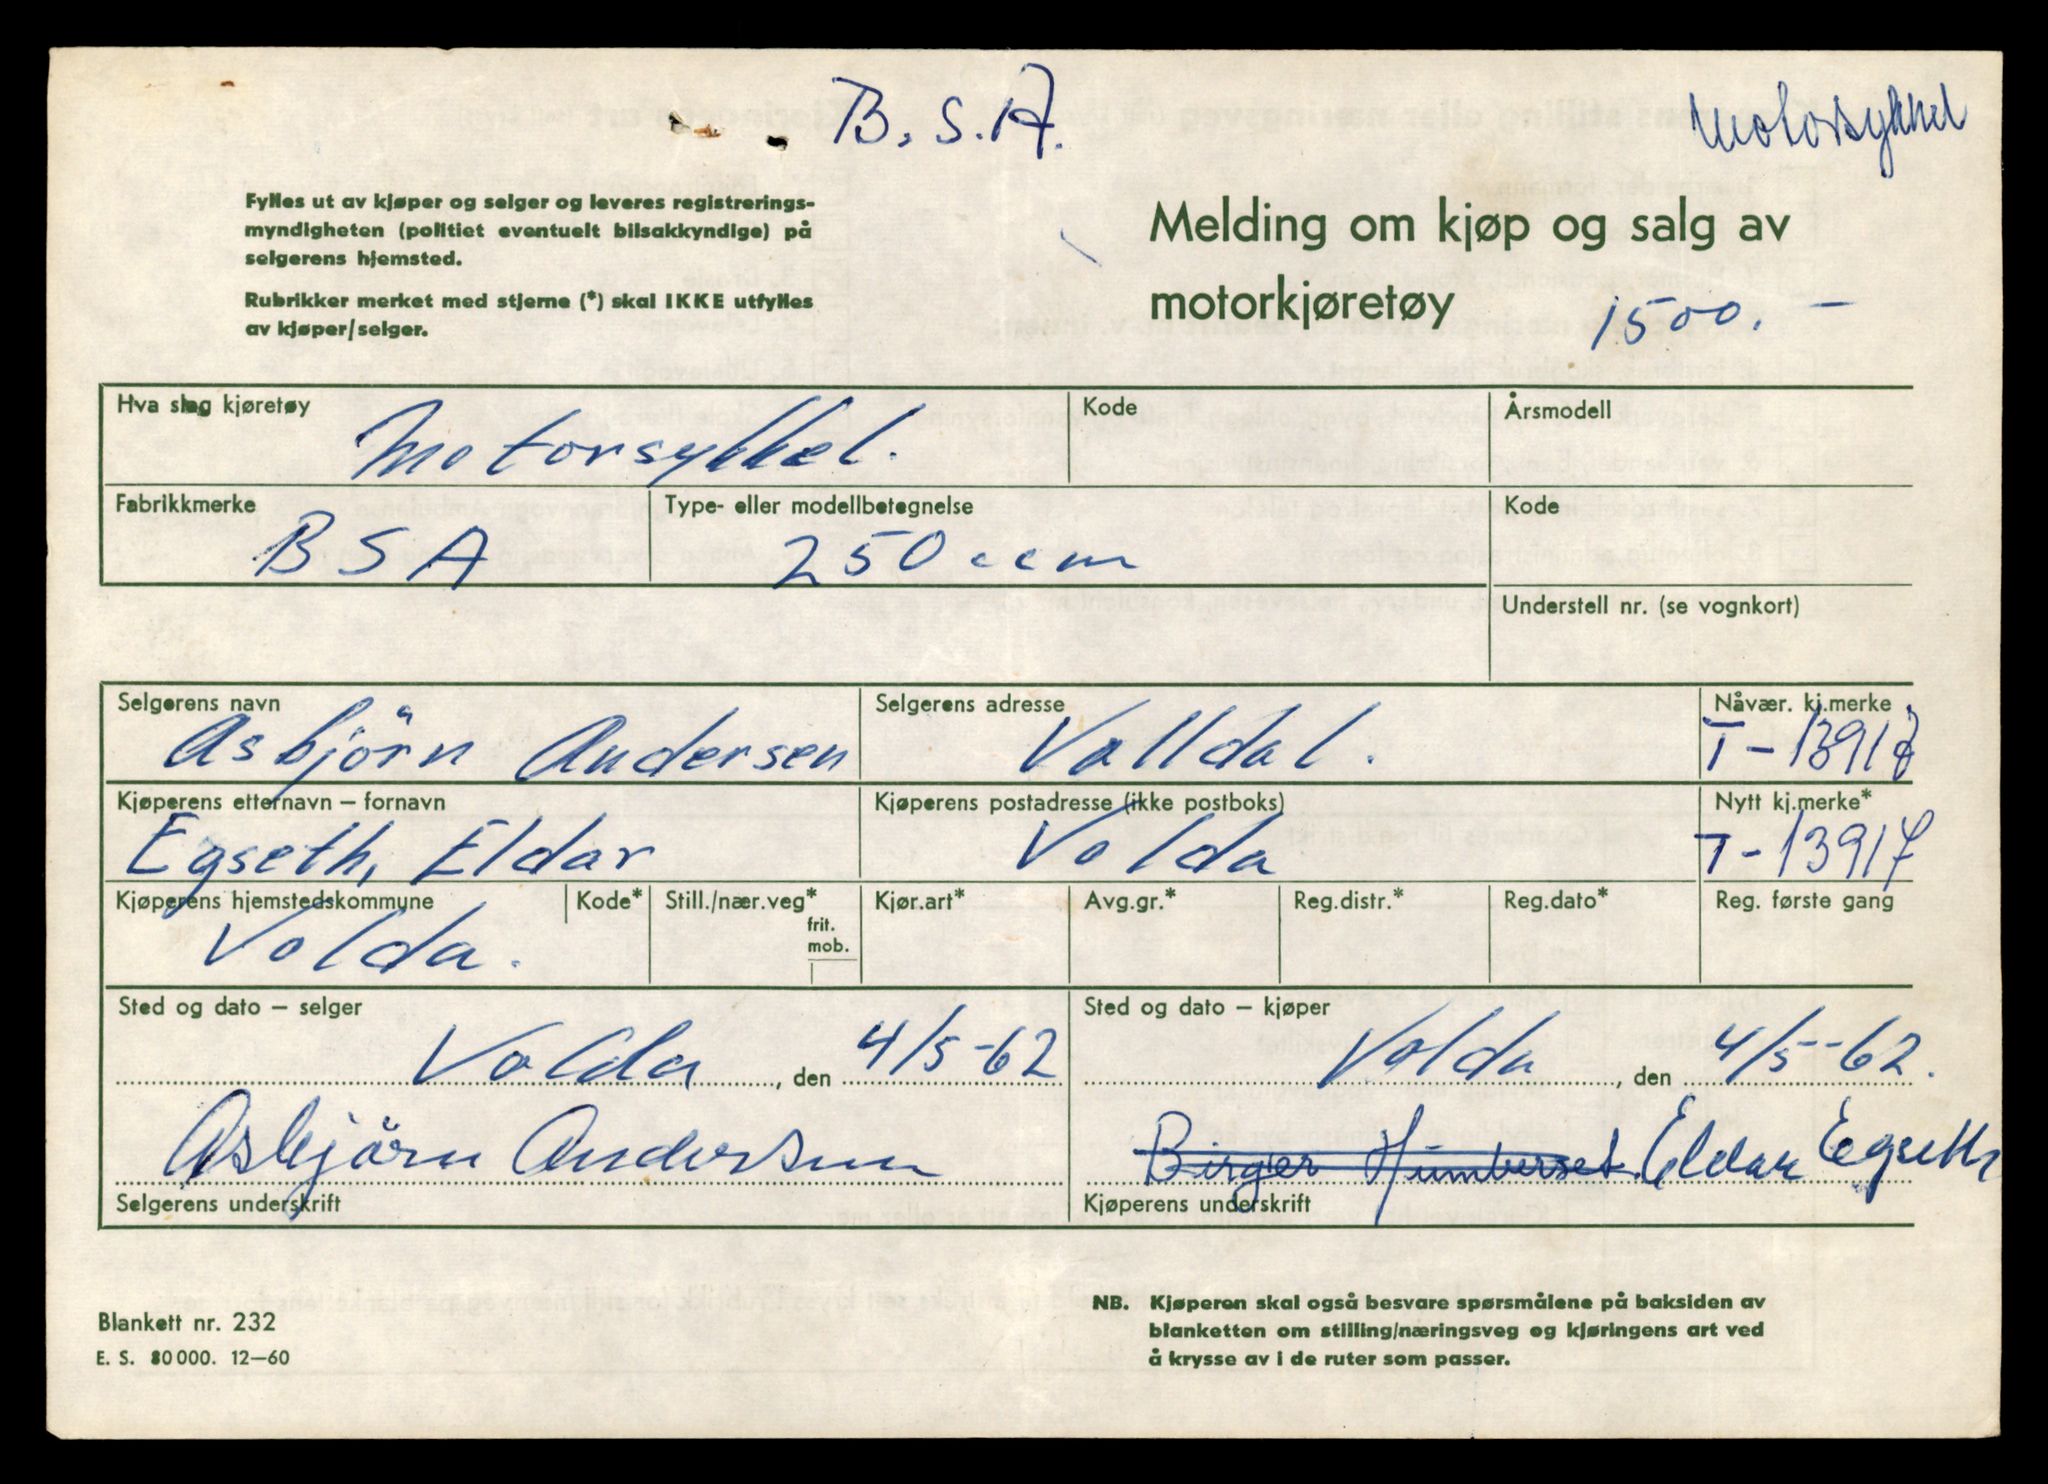 B.S.A.
Motorsykkel
Fylles ut av kjøper og selger og leveres registrerings-
myndigheten (politiet eventuelt bilsakkyndige) på
selgerens hjemsted.
Rubrikker merket med stjerne (*) skal IKKE utfylles
av kjøper/selger.
Melding om kjøp og salg av
motorkjøretøy
1500.—
Hva slag kjøretøy
Kode
Årsmodell
Motorsykkel.
Fabrikkmerke
Type- eller modellbetegnelse
Kode
BSA
250 ccm
Understell nr. (se vognkort)
Selgerens navn
Selgerens adresse
Nåvær. kj.merke
Asbjörn Andersen
Valldal.
T-13917
Kjøperens etternavn – fornavn
Kjøperens postadresse (ikke postboks)
Nytt kj.merke*
Egseth, Eldar
Volda
T-13917
Kjøperens hjemstedskommune
Kode*
Still./nær.veg*
frit.
mob.
Kjør.art*
Avg.gr.*
Reg.distr.*
Reg.dato*
Reg. første gang
Volda.
Sted og dato – selger
Sted og dato – kjøper
Volda, den 4/5-62
Volda, den 4/5-62.
Asbjörn Andersen
Birger Humberset Eldar Egseth
Selgerens underskrift
Kjøperens underskrift
Blankett nr. 232
E. S. 80000. 12—60
NB. Kjøperen skal også besvare spørsmålene på baksiden av
blanketten om stilling/næringsveg og kjøringens art ved
å krysse av i de ruter som passer.